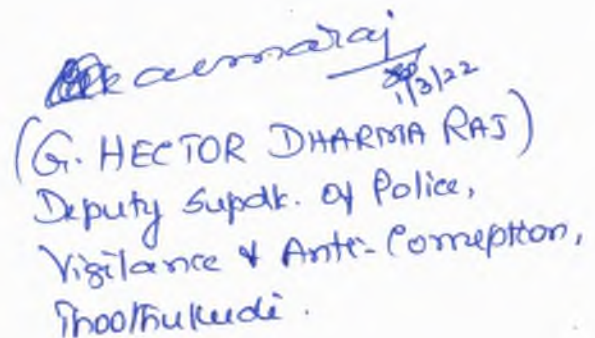 1/3/22
(G. HECTOR DHARMA RAJ)
Deputy Supdt. of Police,
Vigilance & Anti-Corruption,
Thoothukudi.